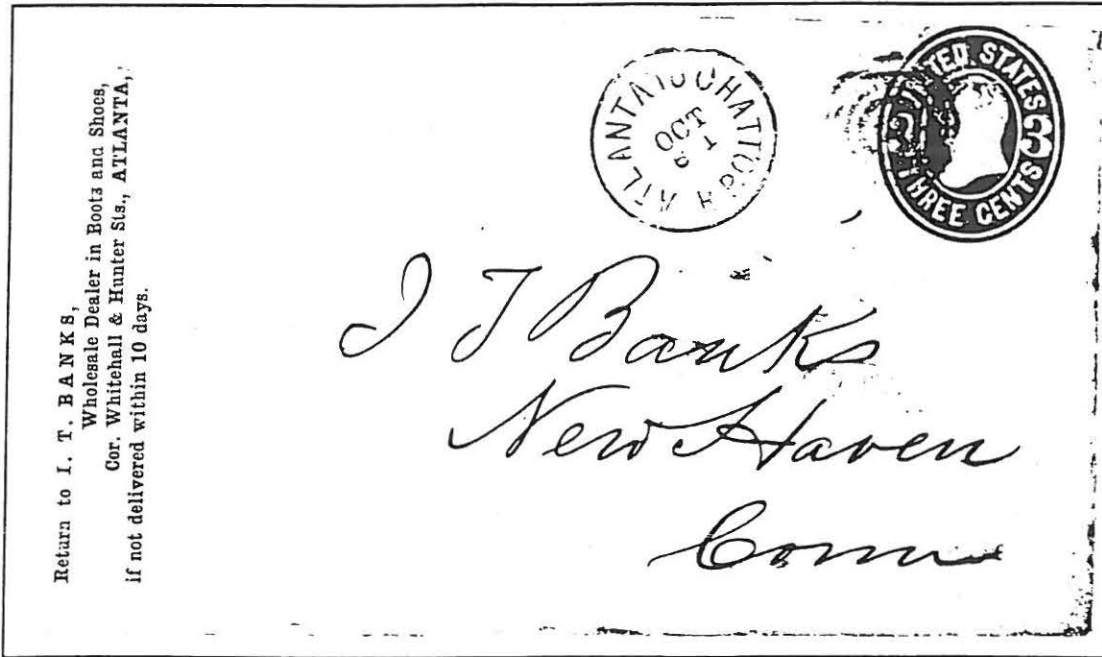 Return to I. T. BANKS,
Wholesale Dealer in Boots and Shoes,
Cor. Whitehall & Hunter Sts., ATLANTA,
if not delivered within 10 days.
ATLANTA TO CHATTOGA
OCT
UNITED STATES
3 3
THREE CENTS
I T Banks
New Haven
Conn